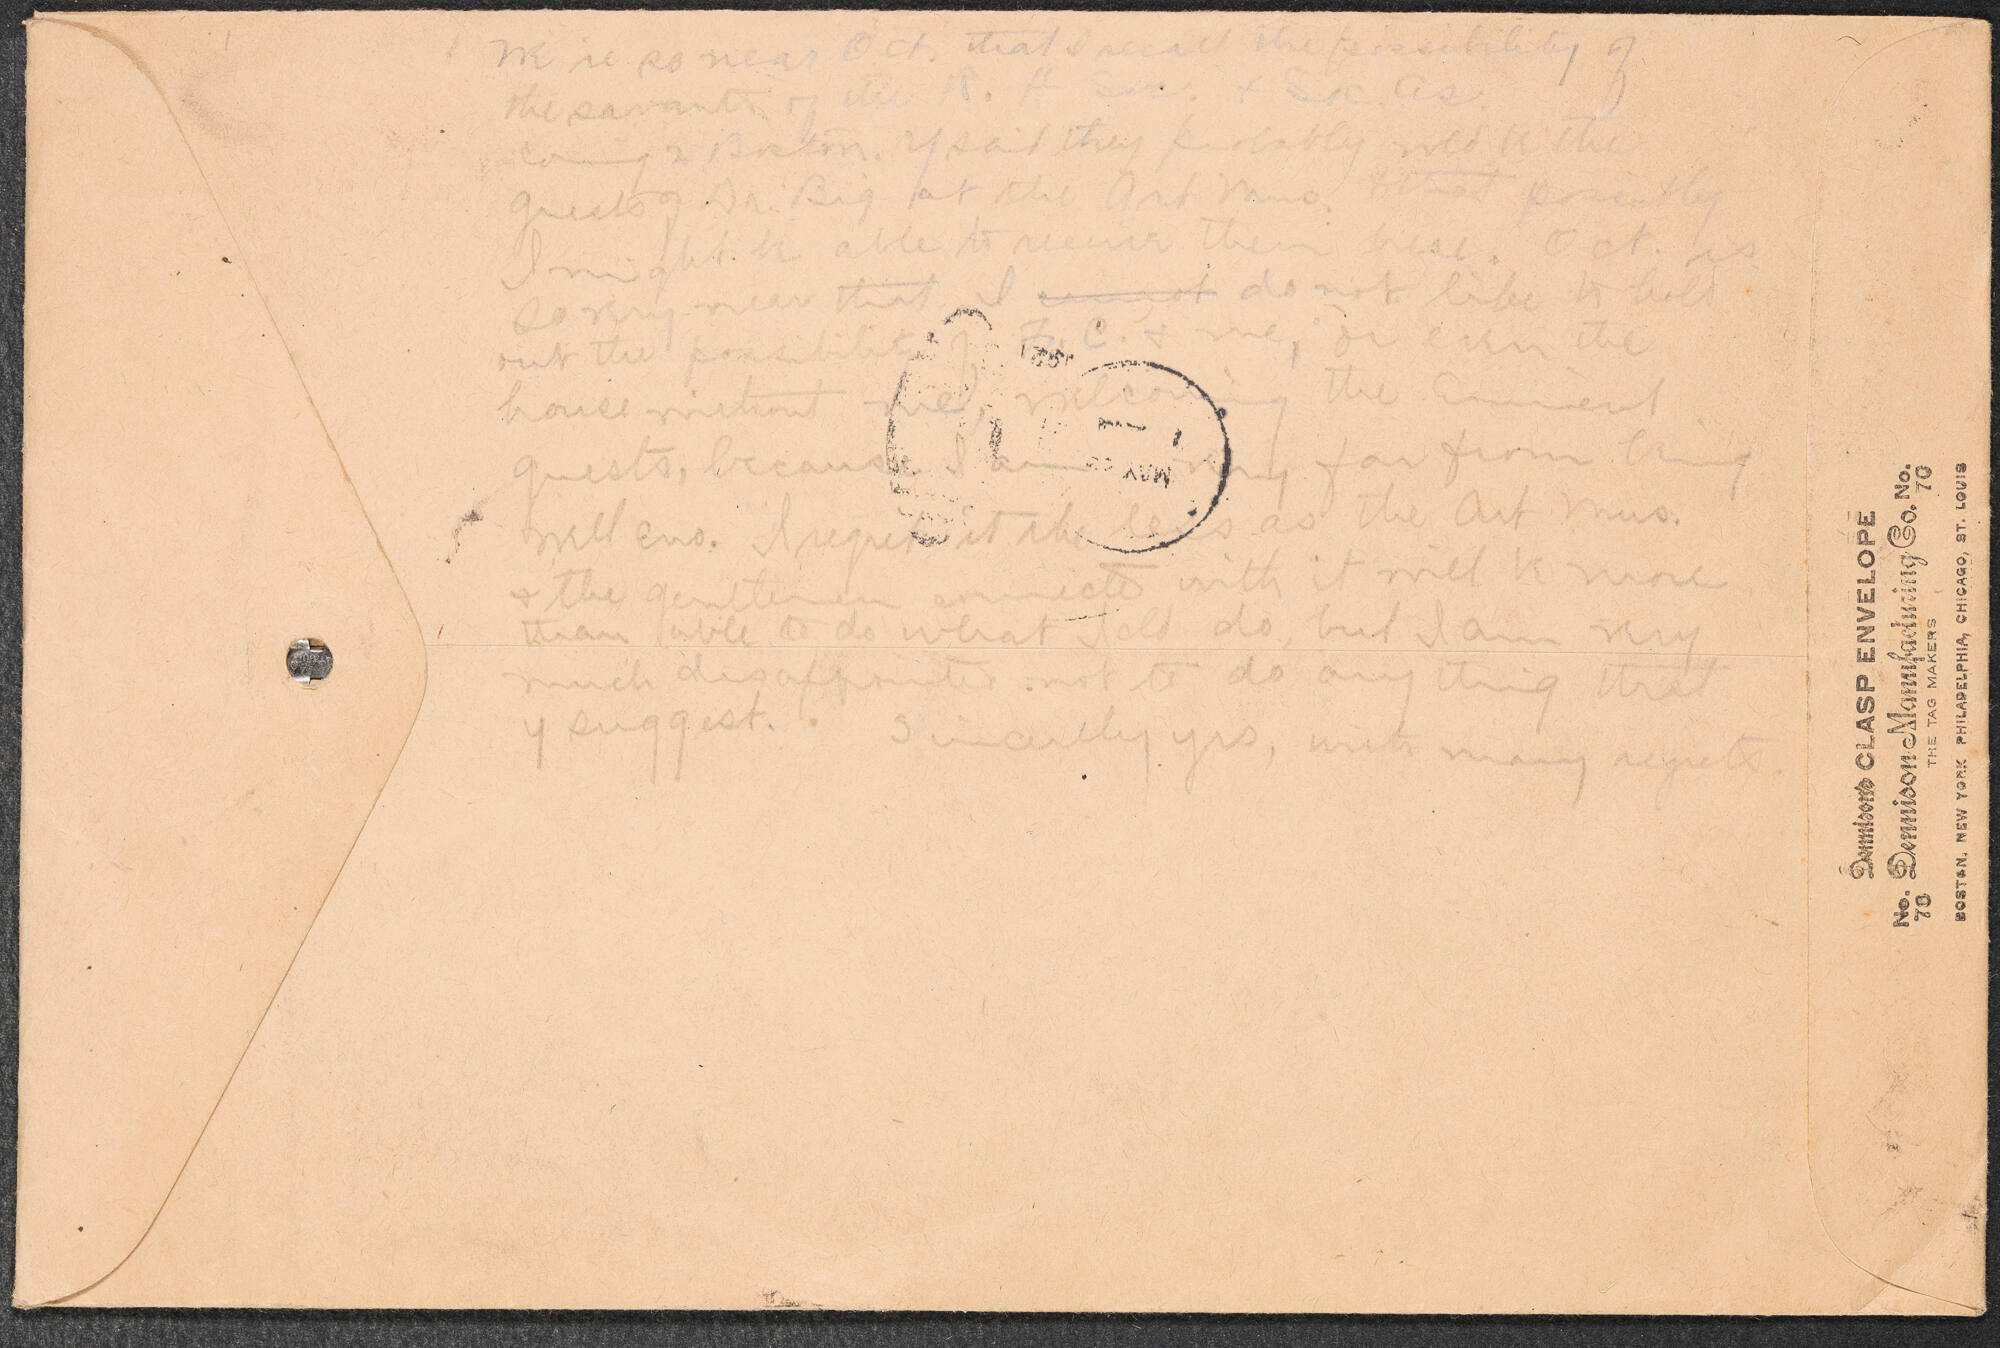 We're so near Oct. that I recall the possibility of
the savants of the R. H Soc. & Soc. As.
coming 2 Boston. Y said they probably wld b the
guests of Dr. Big at the Art Mus. & that possibly
I might b able to receive them here. Oct. is
so very near that I cannot do not like to hold
out the possibility of F. C. & me, or even the
house without me, welcoming the eminent
guests, because I am very far from being
well eno. I regret it the less as the Art Mus.
& the gentlemen connected with it will b more
than able to do what I cld do, but I am very
much disappointed not to do anything that
y suggest. Sincerely yrs, with many regrets.
1921
1
MAY
Dennison's CLASP ENVELOPE
No. 70 Dennison Manufacturing Co. No. 70
THE TAG MAKERS
BOSTON, NEW YORK PHILADELPHIA, CHICAGO, ST. LOUIS